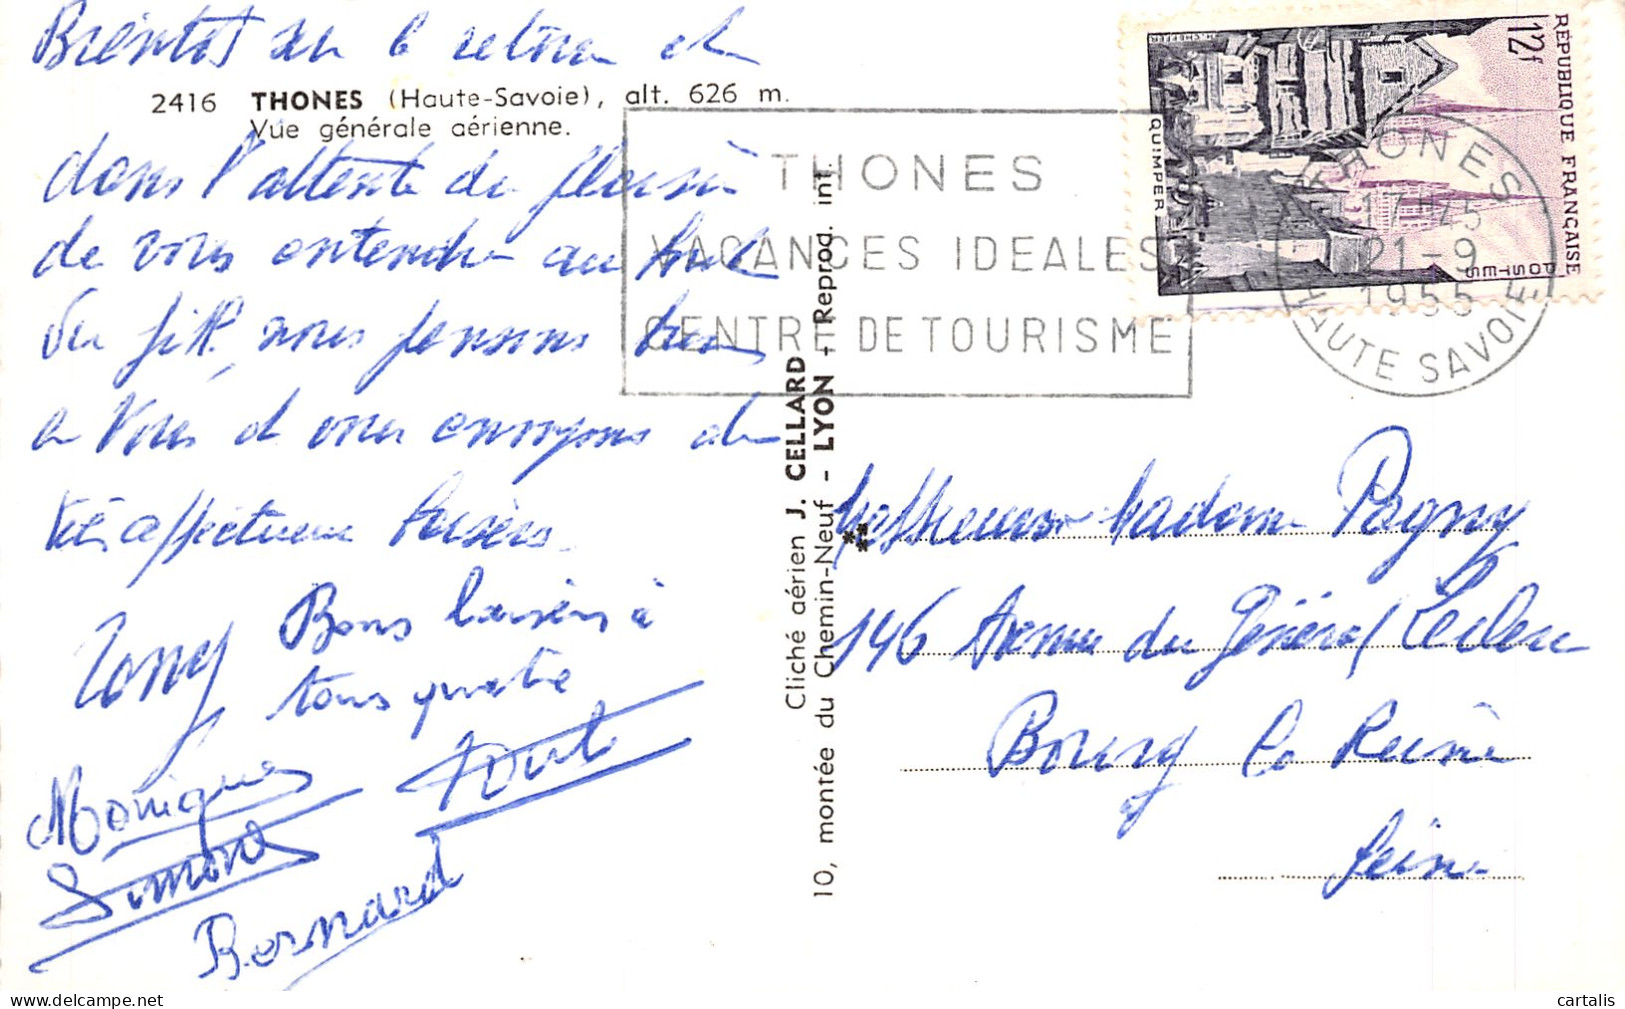 Bientôt sera le retour et
2416 THONES (Haute-Savoie), alt. 626 m.
Vue générale aérienne.
dans l'attente du plaisir
de vous entendre au bout
du fil, nous pensons bien
a Vous et vous envoyons de
très affectueux baisers.
Tony
Bons baisers à
tous quatre
Monique
Simone
Bernard
Cliché aérien J. CELLARD
10, montée du Chemin-Neuf - LYON - Reprod. int.
THONES
VACANCES IDEALES
CENTRE DE TOURISME
THONES
17H45
21-9
1955
HAUTE SAVOIE
12f
RÉPUBLIQUE FRANÇAISE
POSTES
QUIMPER
Madame Pagny
146 Avenue du Général Leclerc
Bourg la Reine
Seine
cartalis